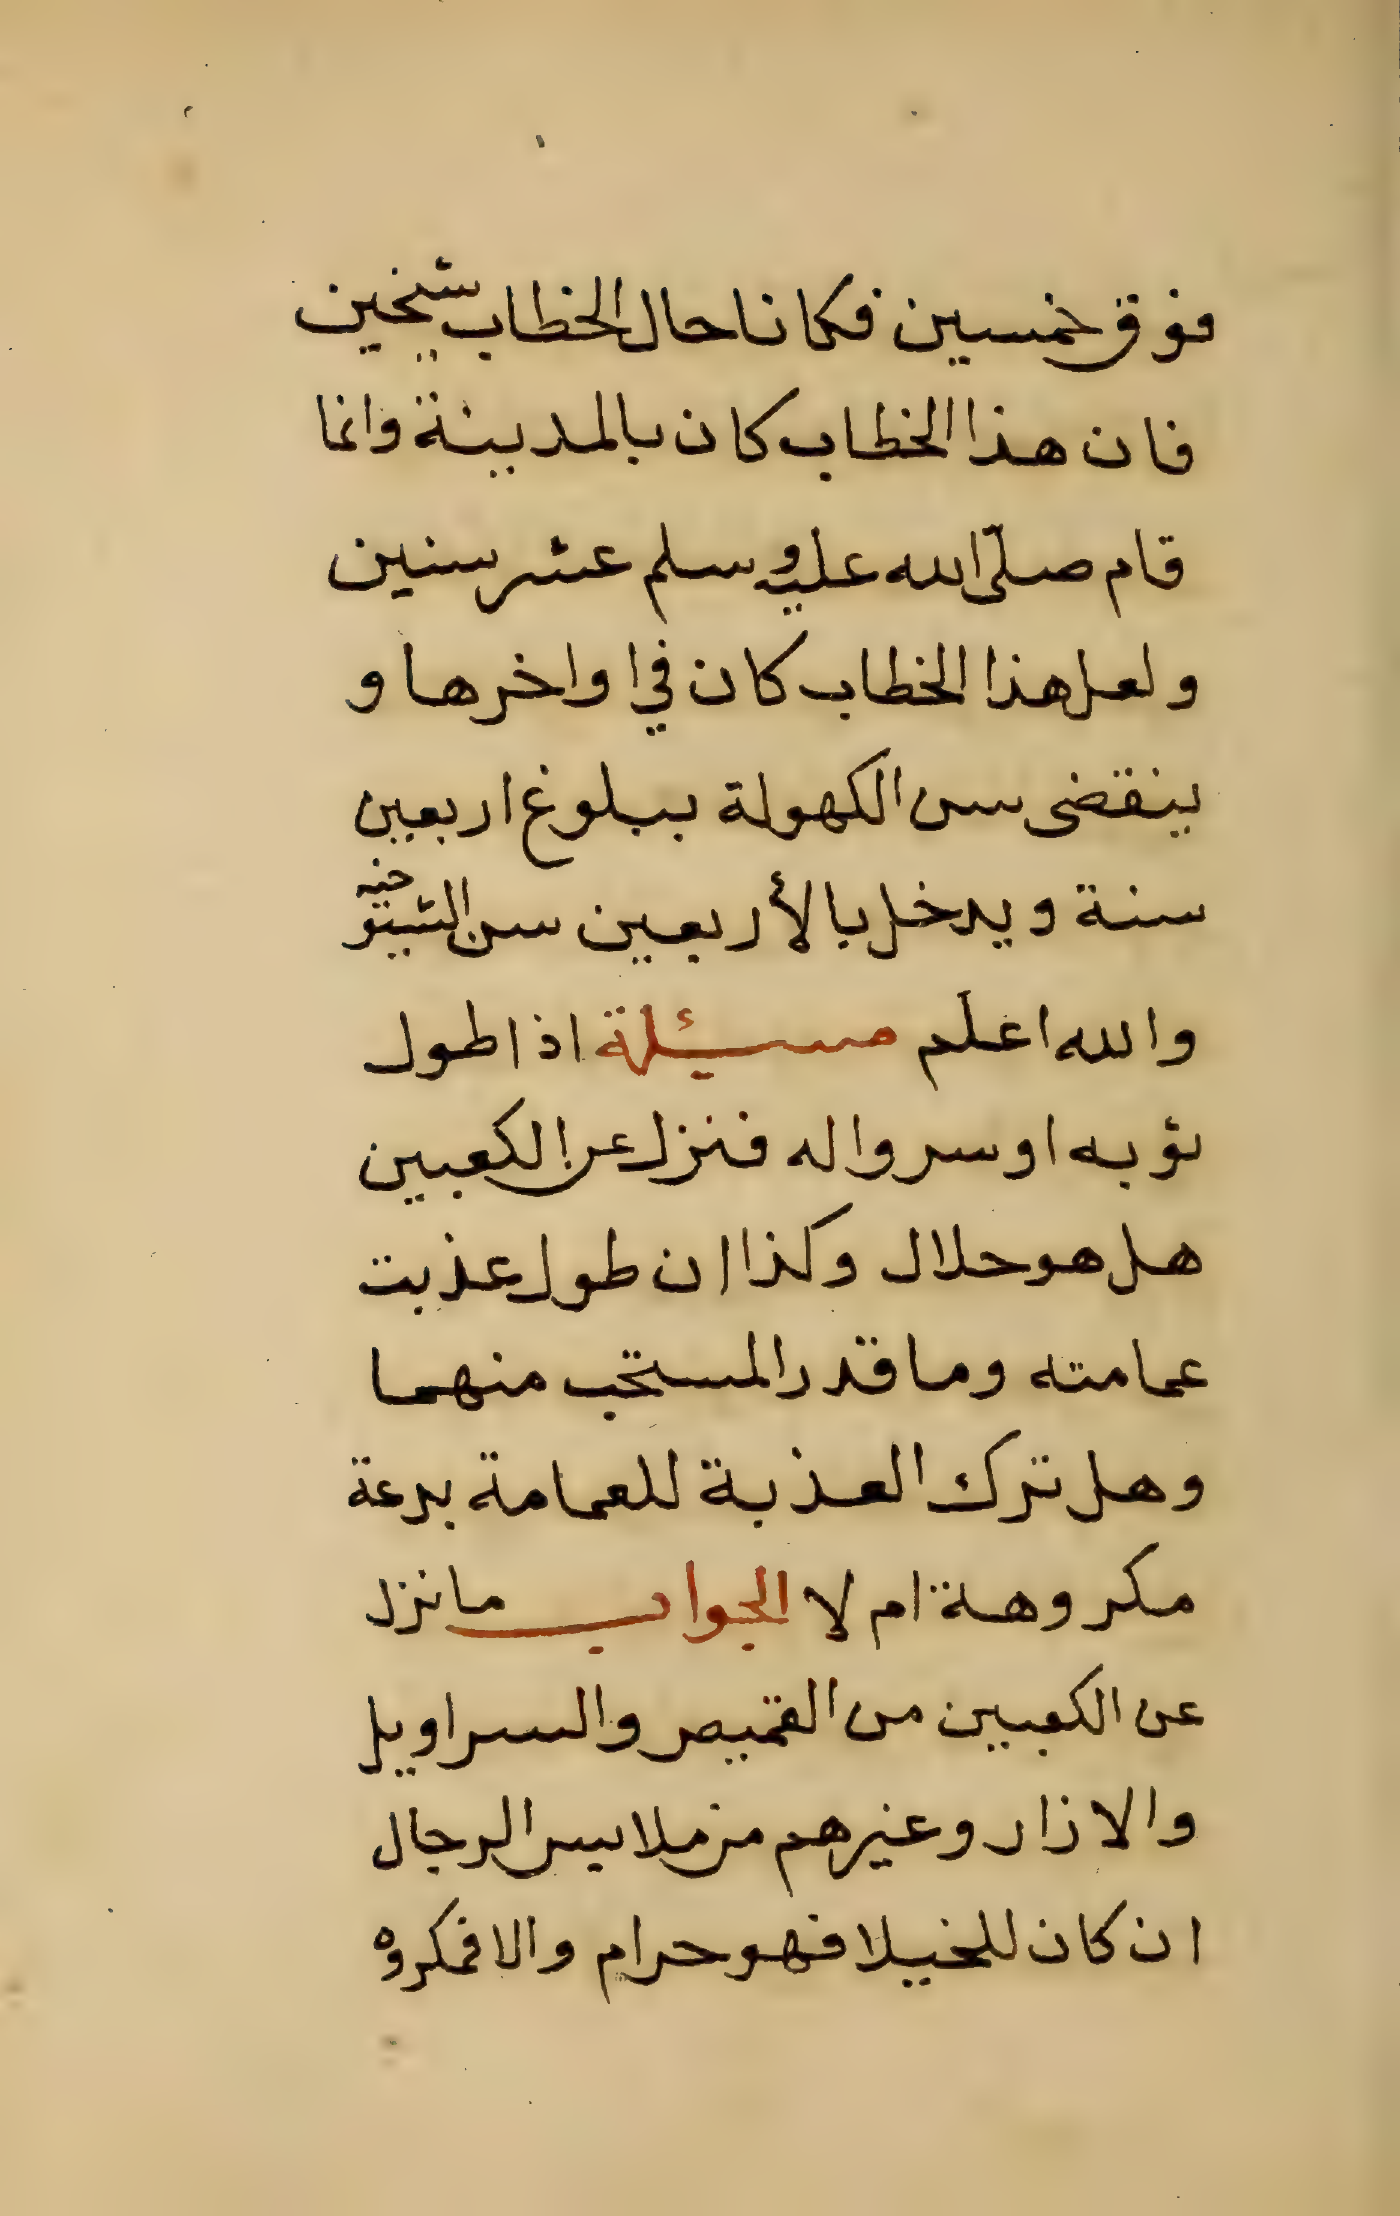 فوق خمسين فكانا حال الخطاب شيخين
فان هذا الخطاب كان بالمدينة وانما
قام صلّى الله عليه وسلم عشر سنين
ولعل هذا الخطاب كان في اواخرها و
ينقضى سن الكهولة ببلوغ اربعين
سنة ويدخل بالأربعين سن الشيخوخيه
والله اعلم مسئلة اذا طول
ثوبه او سرواله فنزل عن الكعبين
هل هو حلال وكذا ان طول عذبت
عمامته وما قدر المستحب منهما
وهل ترك العذبة للعمامة بدعة
مكروهة ام لا الجواب ما نزل
عن الكعبين من القميص والسراويل
والازار وغيرهم من ملابس الرجال
ان كان للخيلا فهو حرام والا فمكروه